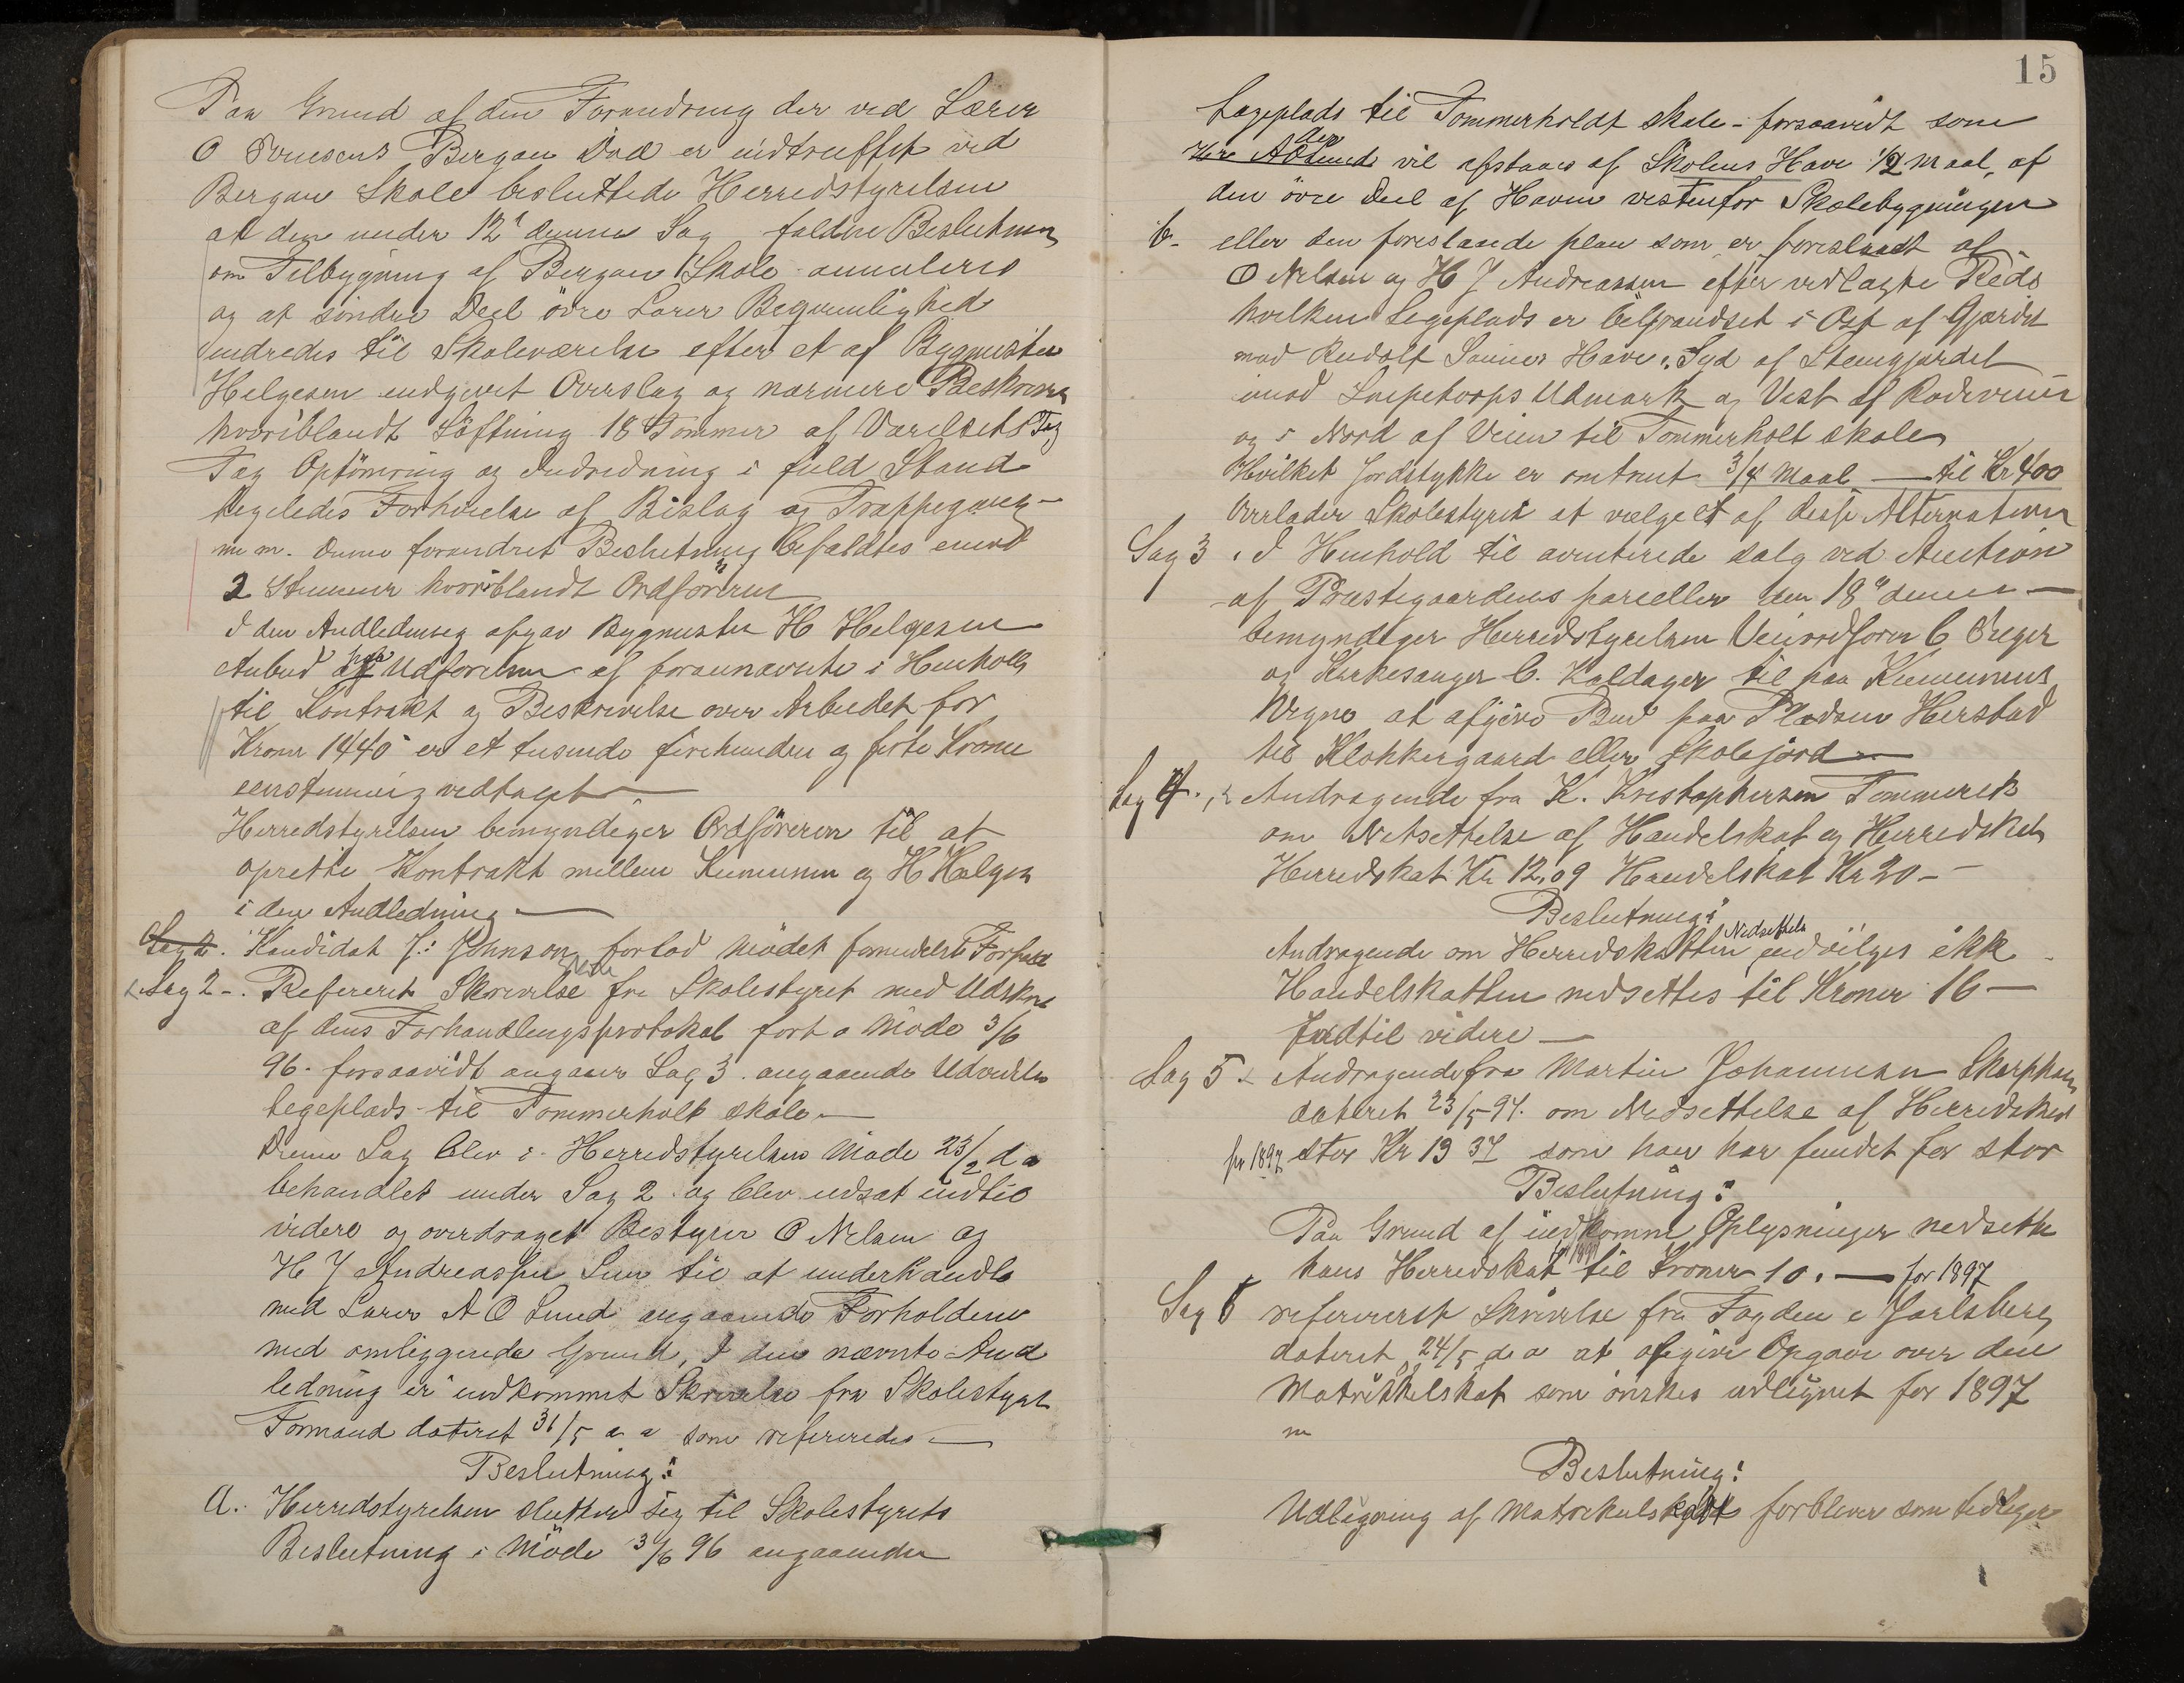 Paa Grund af den Forandring der ved Lærer
O Bergan Død er indtruffet ved
Bergan Skole besluttede Herredstyrelsen
at den under 12' denne Sag faldne Beslutning
om Tilbygning af Bergan Skole annuleres
og at søndre Deel øvre Lærer Beqvemlighed
indredes til Skoleværelse efter et af Bygmester
Helgesen indgivet Overslag og nærmere Beskrivning
hvoriblandt Löftning 18 Tommer af Værelsets Tag
Tag Optömring og Indredning i fuld Stand
ligeledes Forhøielse af Bislag og Trappegang –
m m. Denne forandret Beslutning bifaldtes imod
2 Stemmer hvoriblandt Ordføreren
I den Andledning afgav Bygmester H Helgesen
Anbud paa Udførelsen af forannævnte i Henhold
til Kontrakt og Beskrivelse over Arbeidet for
Kroner 1440 er et tusinde firehundre og førti Kroner
eenstemmig vedtaget —
Herredstyrelsen bemyndiger Ordføreren til at
oprette Kontrakt mellem Kumunen og H Helgesen
i den Andledning —
Sag 2. Kandidat J: Johnson forlod Mødet formedelst Forfald
Sag 2 –. Refereret Skrivelse fra Skolestyret med Udskrift
af dens Forhandlingsprotokol fort a Møde 3/6
96. forsaavidt angaaer Sag 3. angaaende Udvidelse
legeplads til Tommerholt skole —
Denne Sag blev i Herredstyrelsens Møde 23/2 d a
behandlet under Sag 2 og blev udsat indtil
videre og overdraget Bestyrer O Nelsen og
H J Andreassen Sem til at underhandle
med Lærer A O Lund angaaende Forholdene
med omliggende Grund, I den nævnte And
ledning er indkommet Skrivelse fra Skolestyret
Formand dateret 31/5 a a som refereredes —
Beslutning:
a. Herredstyrelsen slutter sig til Skolestyrets
Beslutning i Møde 3/6 96 angaaende
15
Legeplads til Tommerholdt skole – forsaavidt som
der vil afstaaes af Skolens Have 1/2 Maal, af
den övre Deel af Haven vestenfor Skolebygningen
b. eller den foreslaaede plan som er foreslaaet af
O Nelsen og H J Andreassen efter vedlagte Rids
hvilken Legeplads er begrændset i Öst af Gjærdet
mod Rudolf Have, Syd af Stengjerdet
imod Udmark og Vest af Rodeveien
og i Nord af Veien til Tommerholt skole
Hvilket Jordstykke er omtrent 3/4 Maal — til Kr 400
Overlader Skolestyret at vælge et af disse Alternativer
Sag 3. I Henhold til averterede salg ved Auction
af Præstegaardens parceller den 18" dennes —
bemyndiger Herredstyrelsen Veiordfører C
og Kirkesanger C. Kaldager til paa Kumunens
Vegne at afgive Bud paa Pladsen Herstad
til Klokkergaard eller Skolejord —
Sag 4. Andragende fra K. Kristophersen Tommerek
om Netsettelse af Handelskat og Herredskat
Herredskat Kr 12,09 Handelskat Kr 20 –
Beslutning:
Andragende om Herredskatten Nedsettels indvilges ikke
Handelskatten nedsettes til Kroner 16 —
Indtil videre —
Sag 5 Andragende fra Martin Johannesen
dateret 23/5 97. om Nedsettelse af Herredskat
for 1897 stor Kr 19 37 som han har fundet for stor
Beslutning:
Paa Grund af indkomne Oplysninger nedsettes
hans Herredskat til Kroner 10. — for 1897
Sag 6 refereret Skrivelse fra Fogden i Jarlsberg
dateret 24/5 d a at afgive Opgave over den
Matrikkelskat som ønskes udlignet for 1897
m
Beslutning:
Udligning af Matrikulskat forbliver som tidligere